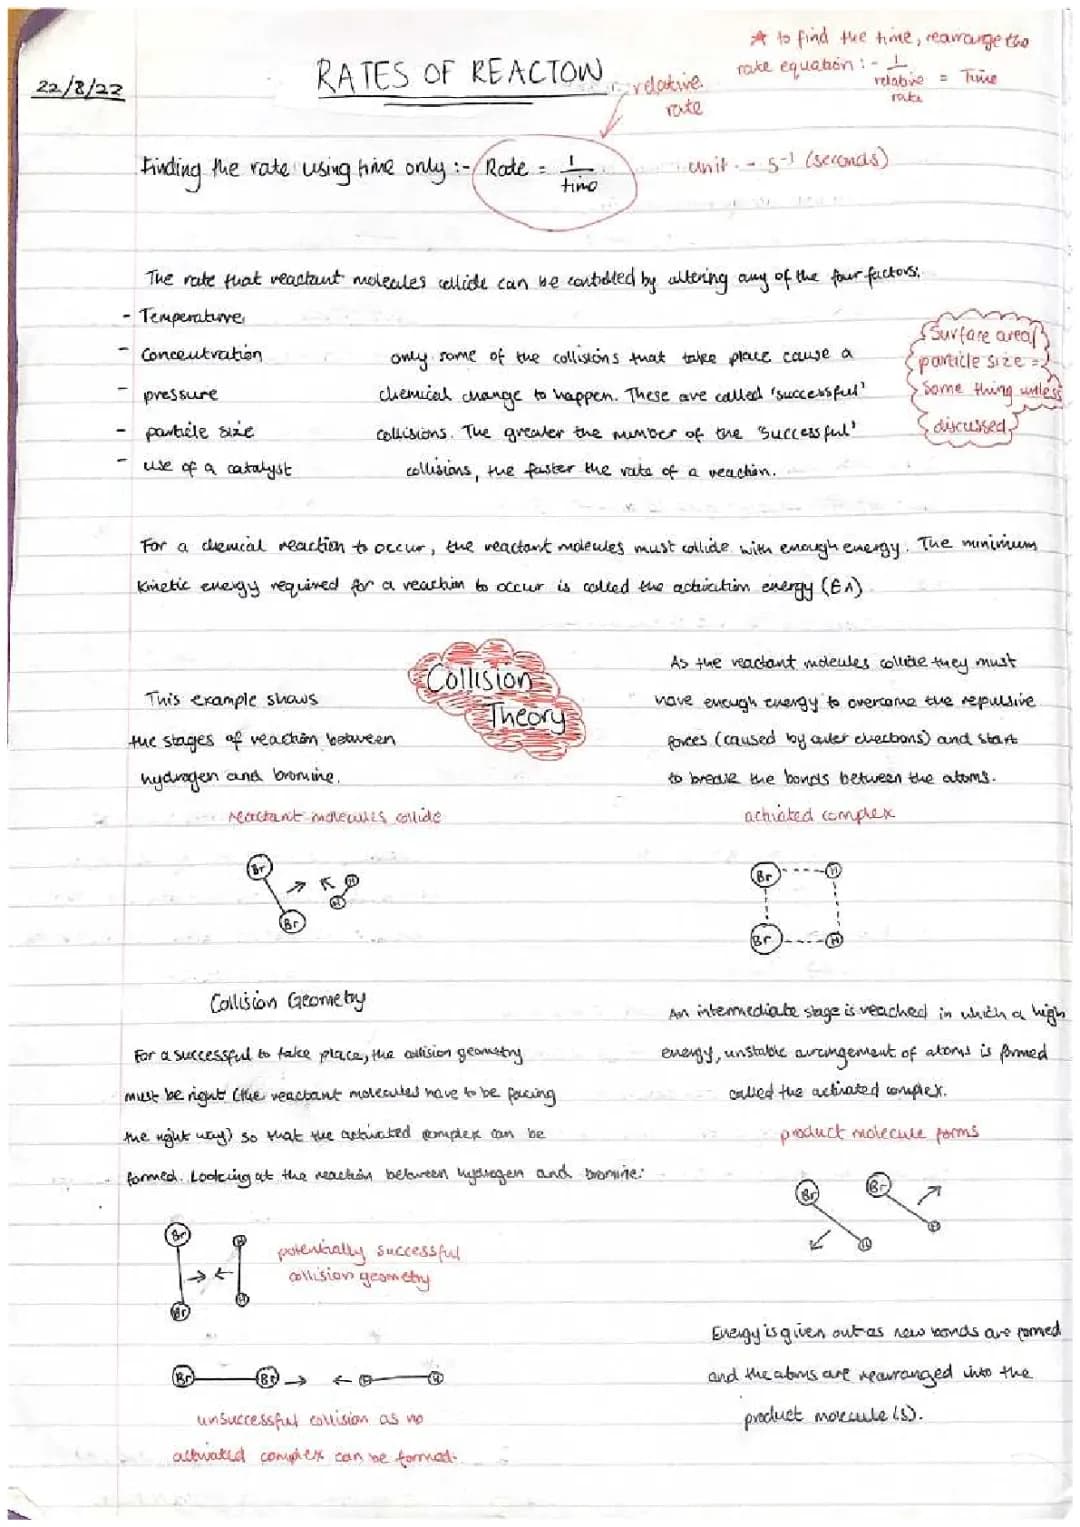 22/8/22
RATES OF REACTON
relative
rate
* to find the time, rearrange the
rate equation :- 1
relative = Time
rate
Finding the rate using time only :- Rate = 1
time
unit - s-1 (seconds)
The rate that reactant molecules collide can be controlled by altering any of the four factors:
- Temperature
- Concentration
- pressure
- particle size
- use of a catalyst
only some of the collisions that take place cause a
chemical change to happen. These are called 'successful'
collisions. The greater the number of the 'successful'
collisions, the faster the rate of a reaction.
Surface area/
particle size =
Some thing unless
discussed
For a chemical reaction to occur, the reactant molecules must collide with enough energy. The minimum
kinetic energy required for a reaction to occur is called the activation energy (EA)
Collision
Theory
This example shows
the stages of reaction between
hydrogen and bromine.
reactant molecules collide
Br
H
H
Br
As the reactant molecules collide they must
have enough energy to overcome the repulsive
forces (caused by outer electrons) and start
to break the bonds between the atoms.
activated complex
Br H
Br H
Collision Geometry
For a successful to take place, the collision geometry
must be right (the reactant molecules have to be facing
the right way) so that the activated complex can be
formed. Looking at the reaction between hydrogen and bromine:
Br H
Br H
potentially successful
collision geometry
Br Br H H
unsuccessful collision as no
activated complex can be formed.
An intermediate stage is reached in which a high
energy, unstable arrangement of atoms is formed
called the activated complex.
product molecule forms
Br Br
H H
Energy is given out as new bonds are formed
and the atoms are rearranged into the
product molecule(s).